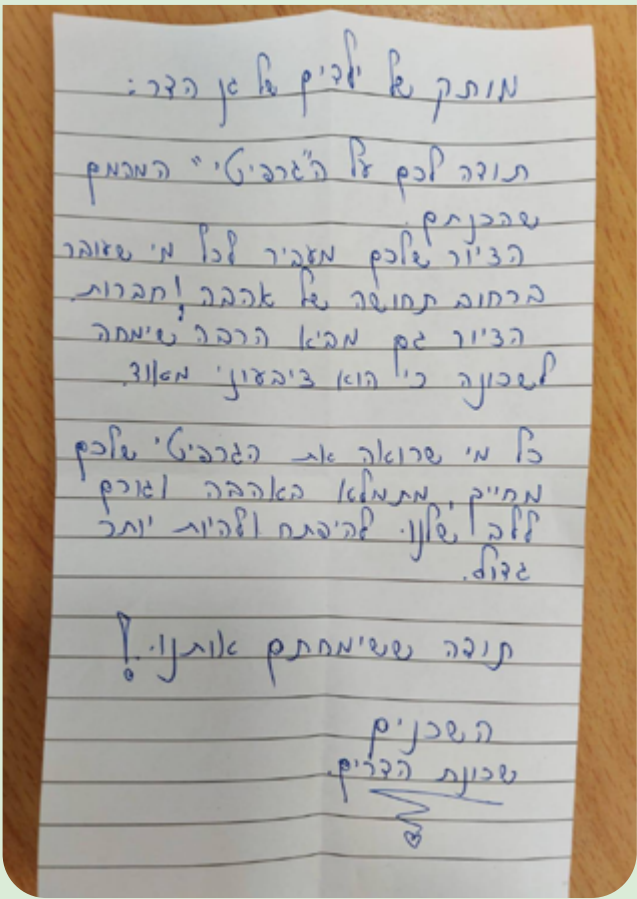 מותק של ילדים של גן הדר:
תודה לכם על ה"גרפיטי" המהמם
שהכנתם.
הציור שלכם מעביר לכל מי שעובר
ברחוב תחושה של אהבה וחברות.
הציור גם מביא הרבה שימחה
לשכונה כי הוא ציבעוני מאוד.
כל מי שרואה את הגרפיטי שלכם
מחייך, מתמלא באהבה וגורם
ללב שלנו להיפתח ולהיות יותר
גדול.
תודה ששימחתם אותנו!
השכנים
שכונת הדרים